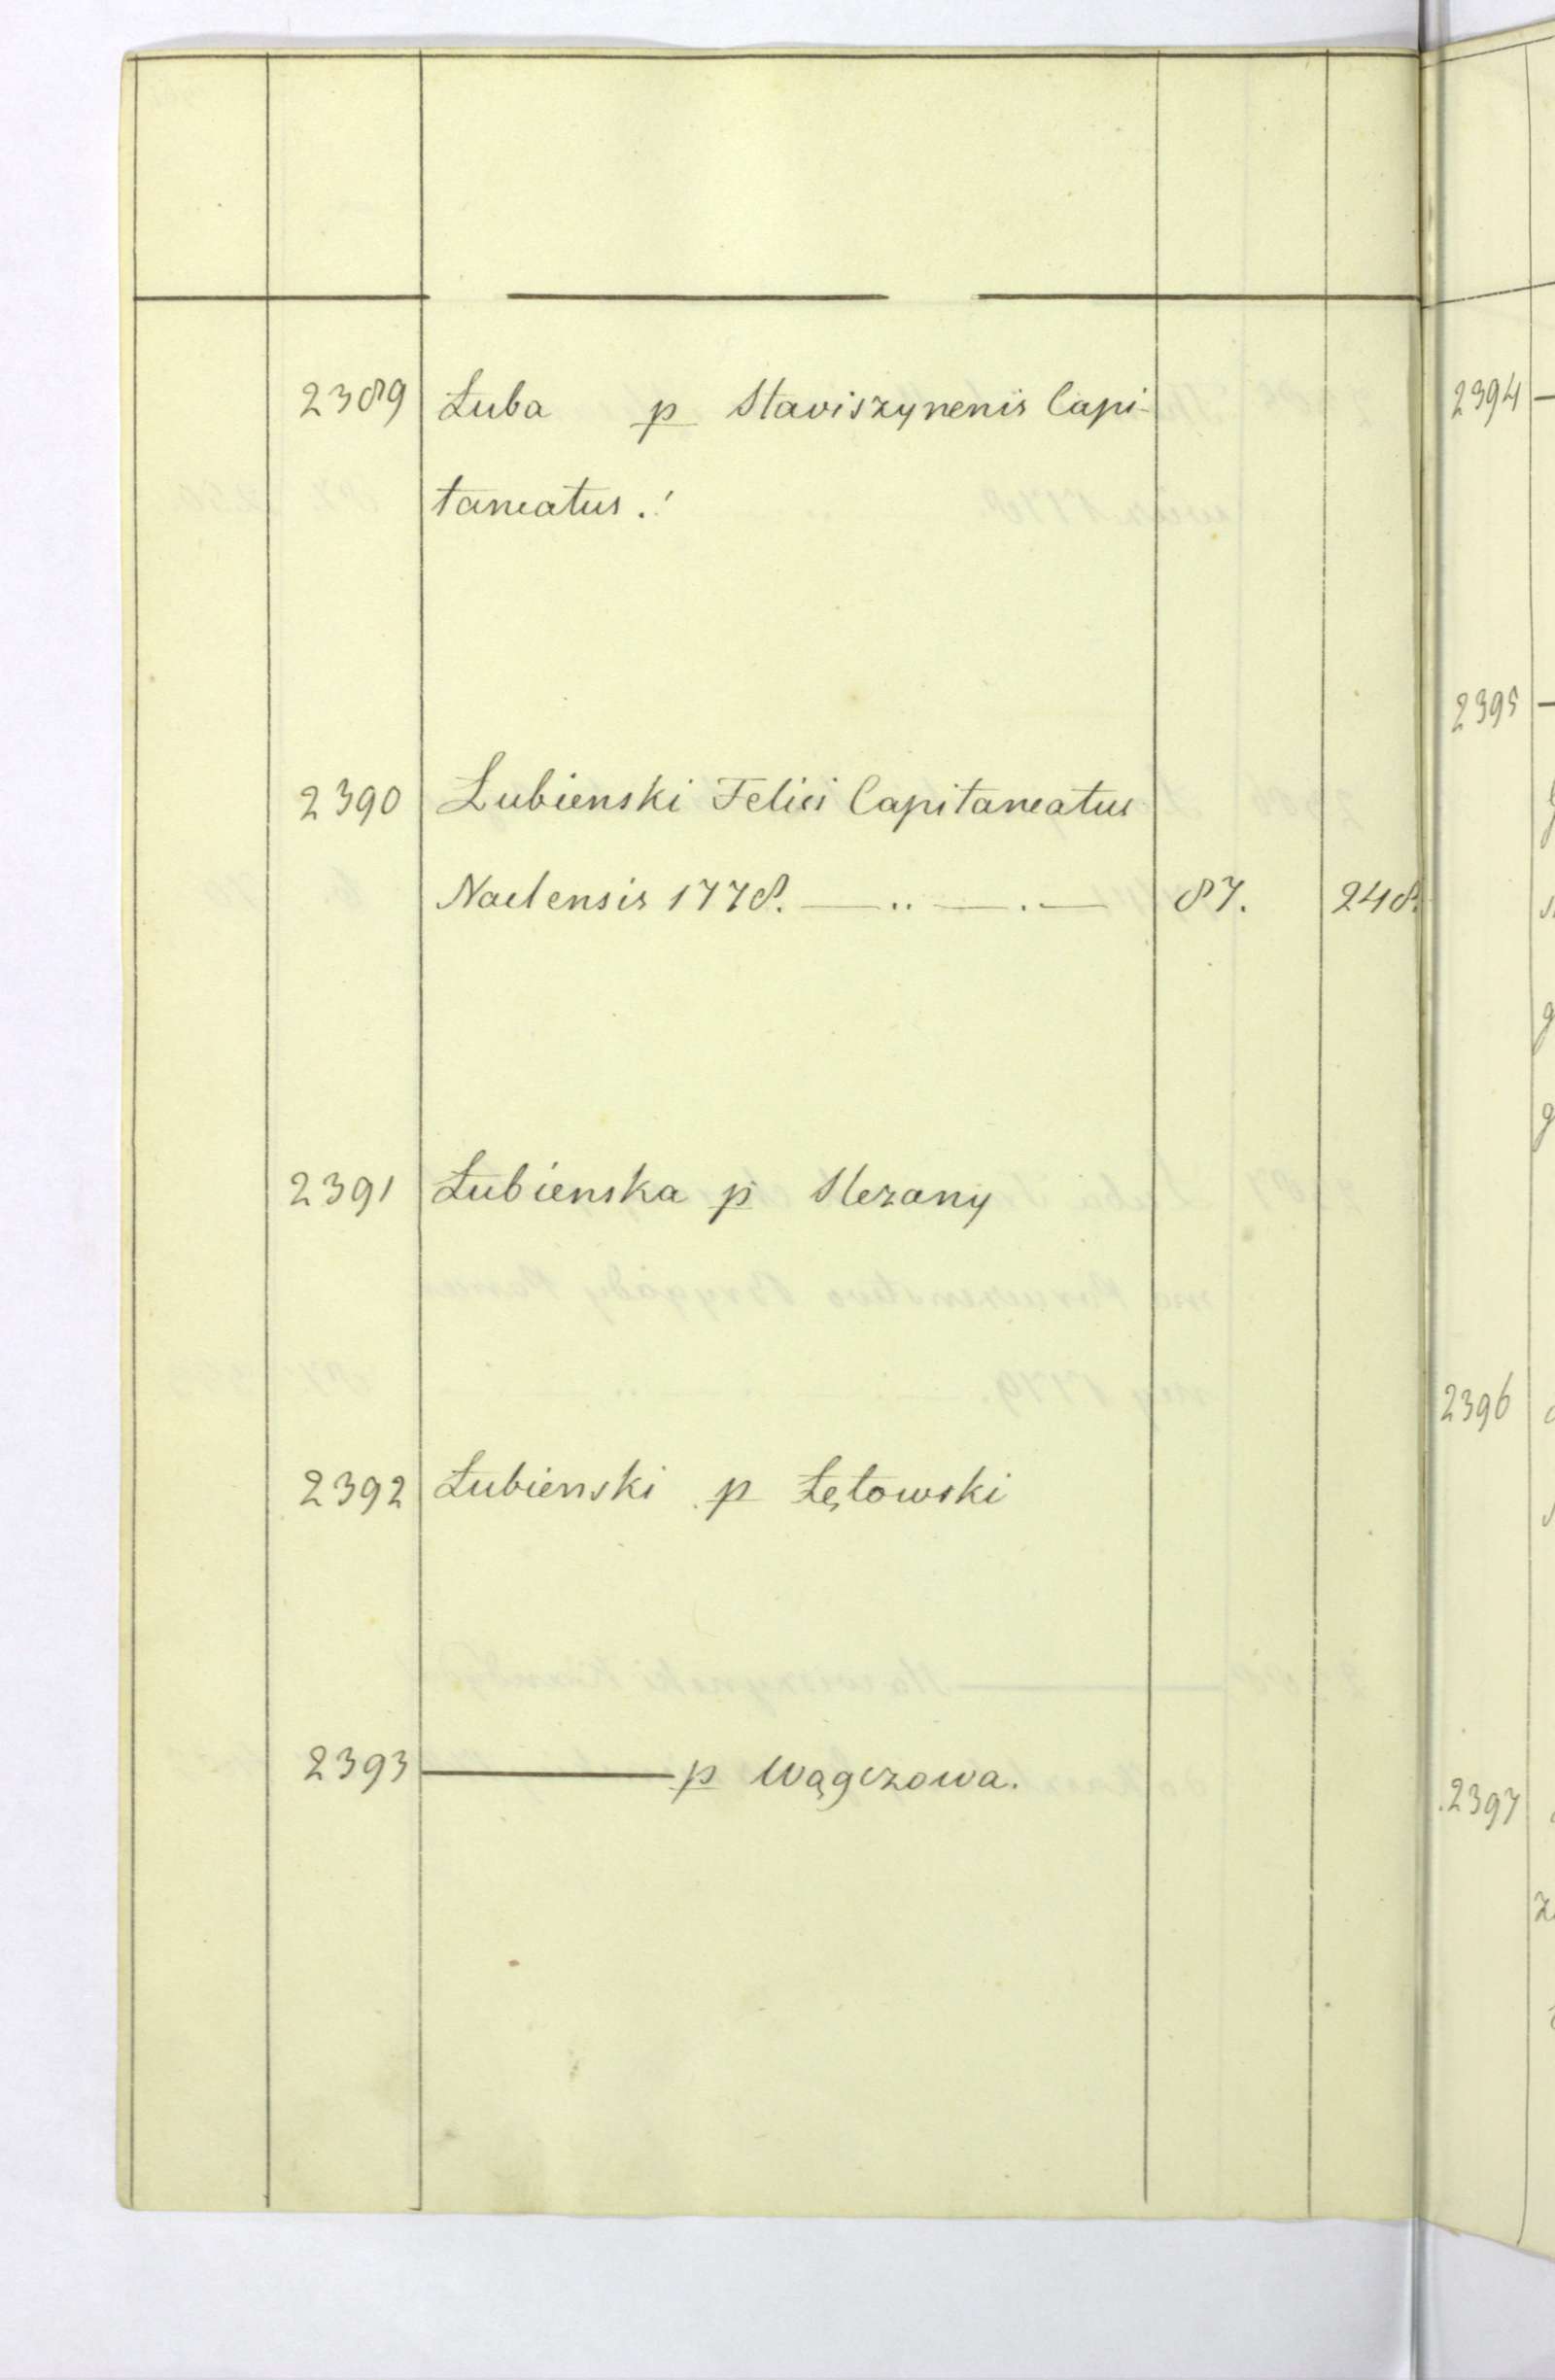 2389 Łuba p Staviszynenis Capi-
taneatus.!
2390 Łubienski Felici Capitaneatus
Naclensis 1778. 87. 248.
2391 Łubienska p Slezany
2392 Łubienski p Łętowski
2393 ——— p Wągczowa.
2394 —
2395 —
2396
2397